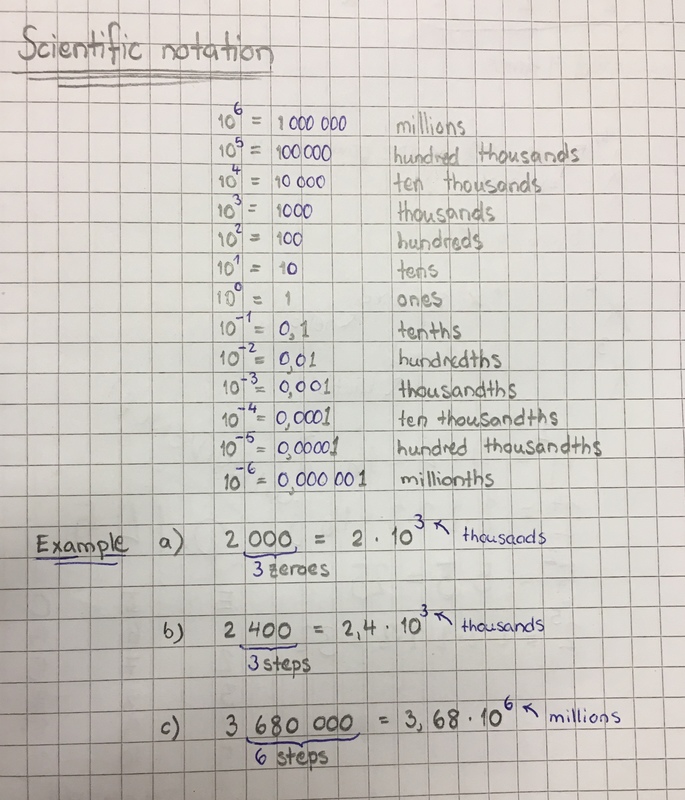 Scientific notation
10⁶ = 1 000 000 millions
10⁵ = 100 000 hundred thousands
10⁴ = 10 000 ten thousands
10³ = 1000 thousands
10² = 100 hundreds
10¹ = 10 tens
10⁰ = 1 ones
10⁻¹ = 0,1 tenths
10⁻² = 0,01 hundredths
10⁻³ = 0,001 thousandths
10⁻⁴ = 0,0001 ten thousandths
10⁻⁵ = 0,00001 hundred thousandths
10⁻⁶ = 0,000 001 millionths
Example a) 2 000 = 2 · 10³ ↖ thousands
3 zeroes
b) 2 400 = 2,4 · 10³ ↖ thousands
3 steps
c) 3 680 000 = 3,68 · 10⁶ ↖ millions
6 steps